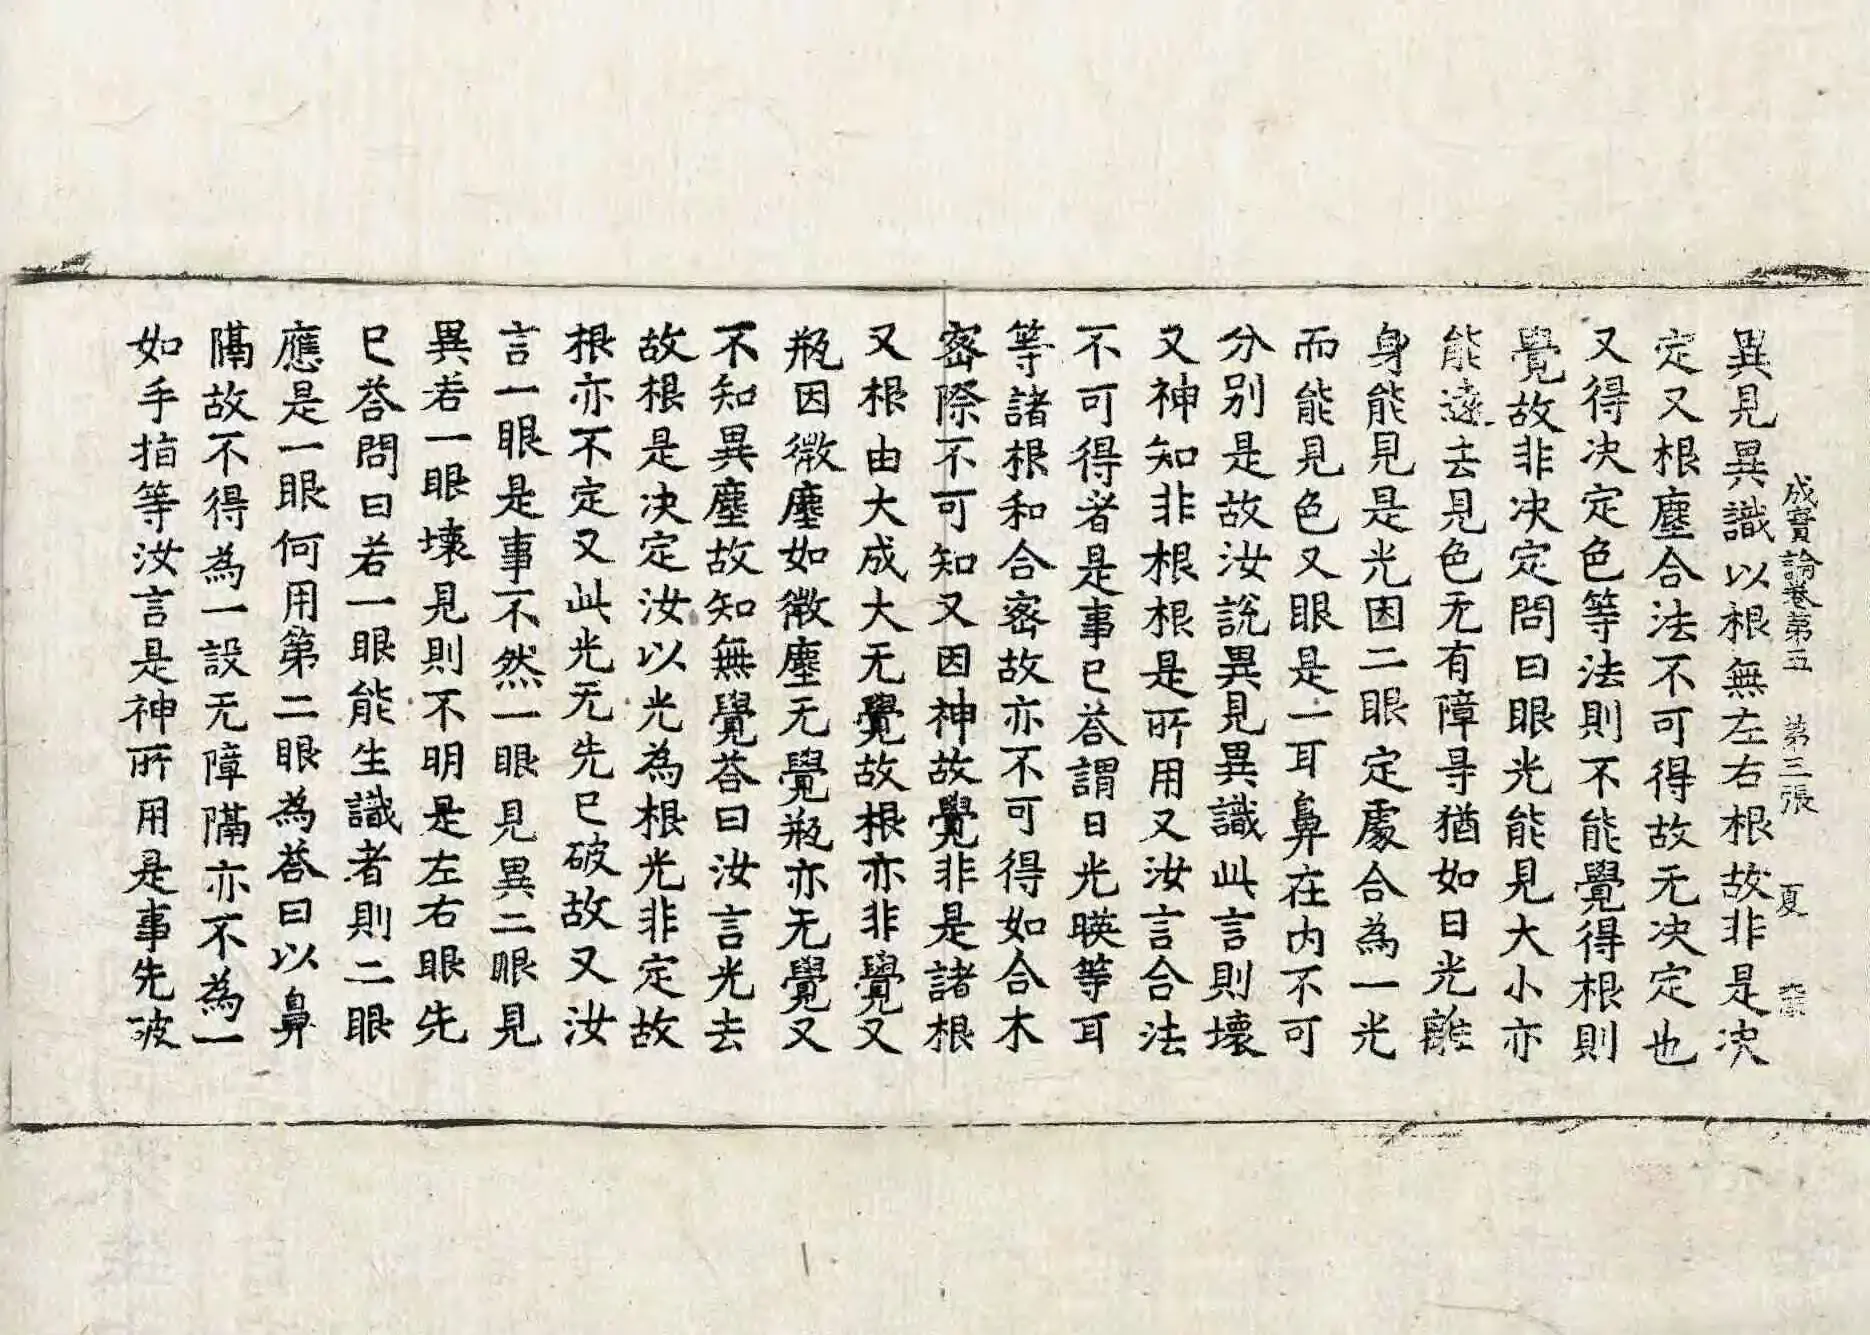 成實論卷第五 第三張 夏
異見異識以根無左右根故非是决
定又根塵合法不可得故无决定也
又得决定色等法則不能覺得根則
覺故非决定問曰眼光能見大小亦
能遠去見色无有障㝵猶如日光離
身能見是光因二眼定處合為一光
而能見色又眼是一耳鼻在内不可
分别是故汝說異見異識此言則壞
又神知非根根是所用又汝言合法
不可得者是事已荅謂日光暎等耳
等諸根和合宻故亦不可得如合木
宻際不可知又因神故覺非是諸根
又根由大成大无覺故根亦非覺又
瓶因微塵如微塵无覺瓶亦无覺又
不知異塵故知無覺荅曰汝言光去
故根是决定汝以光為根光非定故
根亦不定又此光无先已破故又汝
言一眼是事不然一眼見異二眼見
異若一眼壞見則不明是左右眼先
已荅問曰若一眼能生識者則二眼
應是一眼何用第二眼為荅曰以鼻
隔故不得為一設无障隔亦不為一
如手指等汝言是神所用是事先破